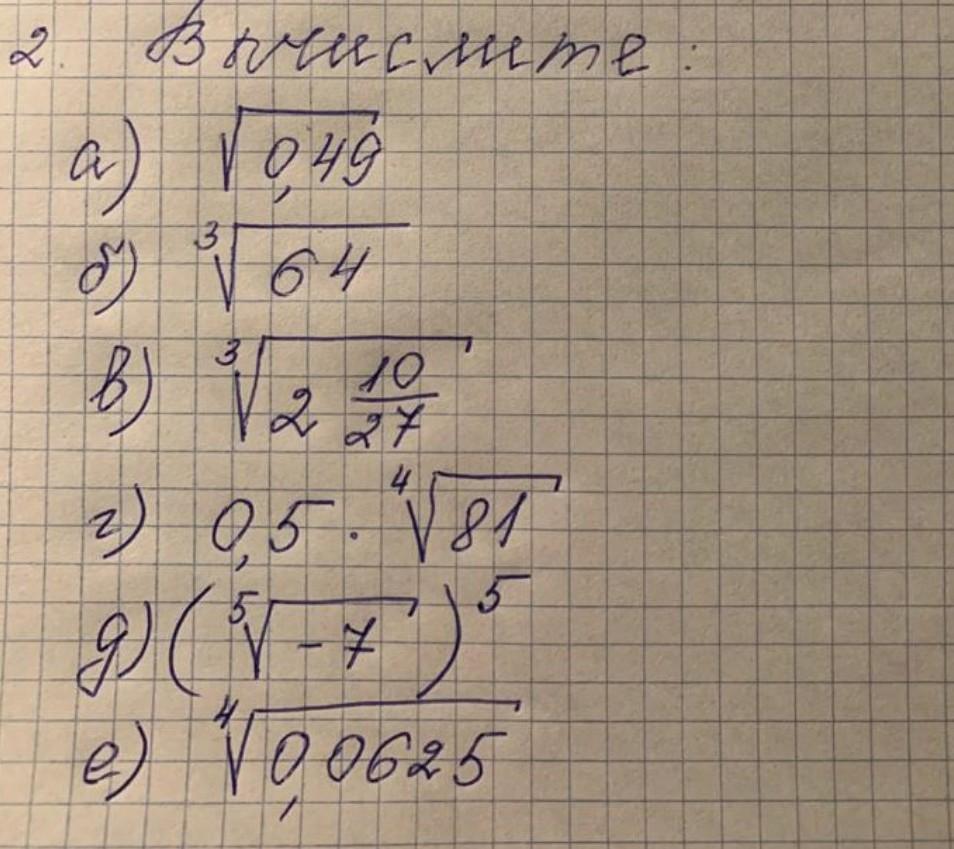 2. Вычислите:
а) √0,49
б) ∛64
в) ∛2 10/27
г) 0,5 · ∜81
д) (⁵√-7)⁵
е) ∜0,0625